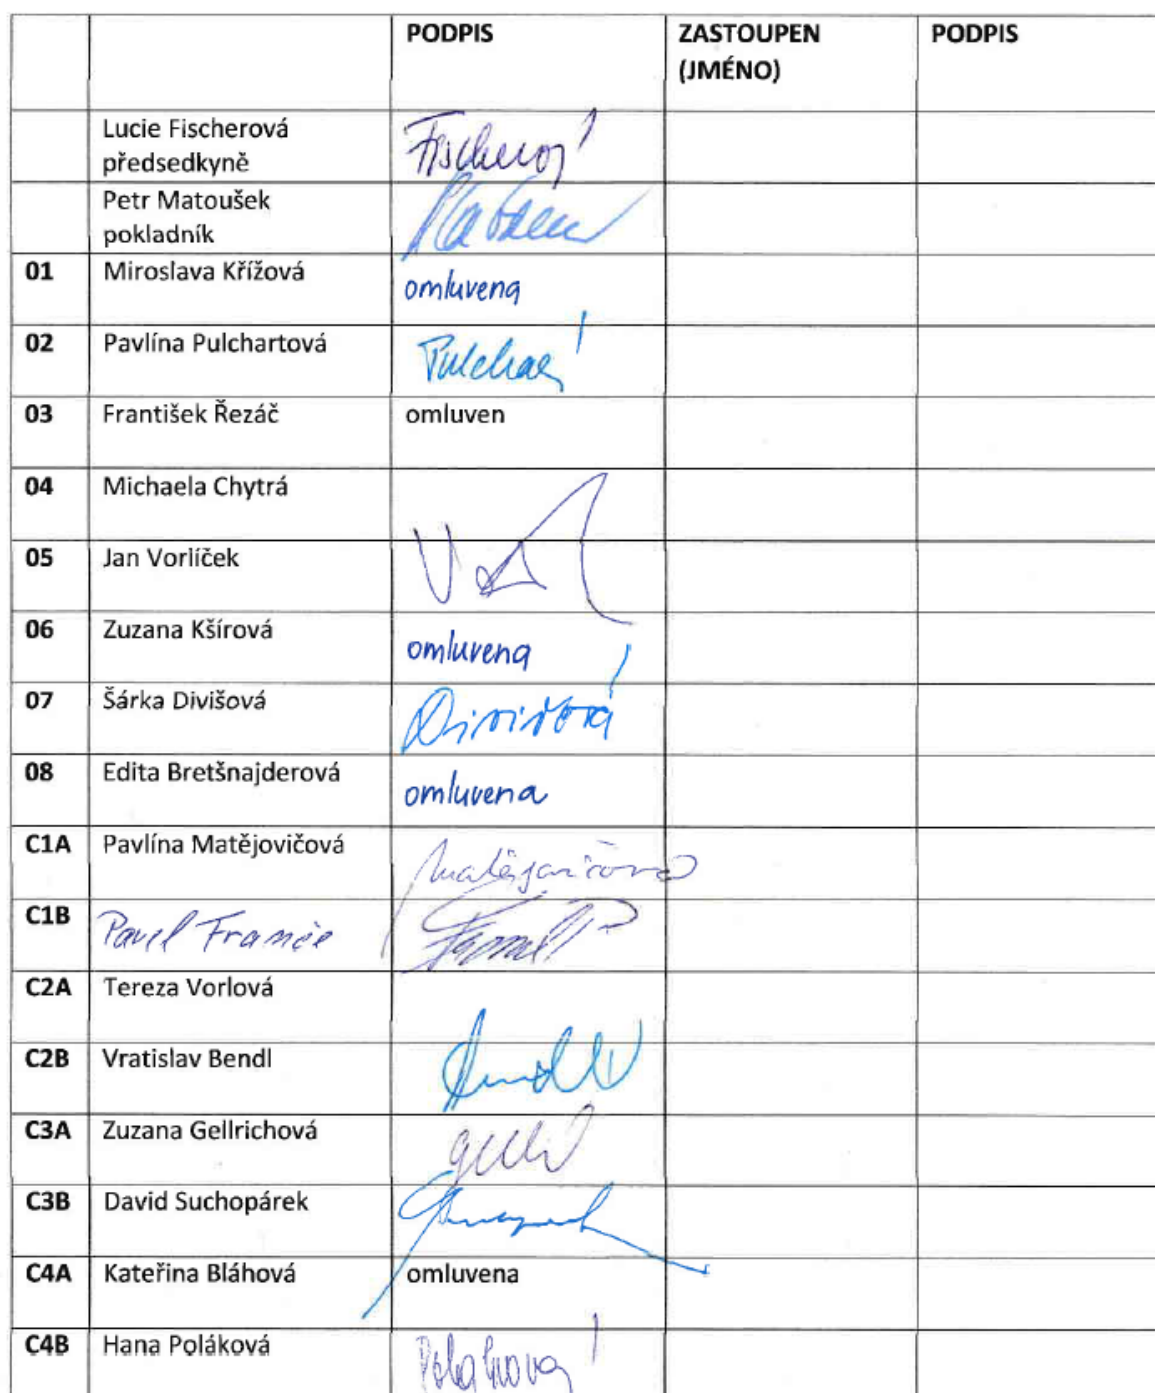 PODPIS ZASTOUPEN (JMÉNO) PODPIS
Lucie Fischerová
předsedkyně
Petr Matoušek
pokladník
01 Miroslava Křížová omluvena
02 Pavlína Pulchartová
03 František Řezáč omluven
04 Michaela Chytrá
05 Jan Vorlíček
06 Zuzana Kšírová omluvena
07 Šárka Divišová Divišová
08 Edita Bretšnajderová omluvena
C1A Pavlína Matějovičová Matějovičová
C1B Pavel Franče
C2A Tereza Vorlová
C2B Vratislav Bendl
C3A Zuzana Gellrichová
C3B David Suchopárek
C4A Kateřina Bláhová omluvena
C4B Hana Poláková Poláková